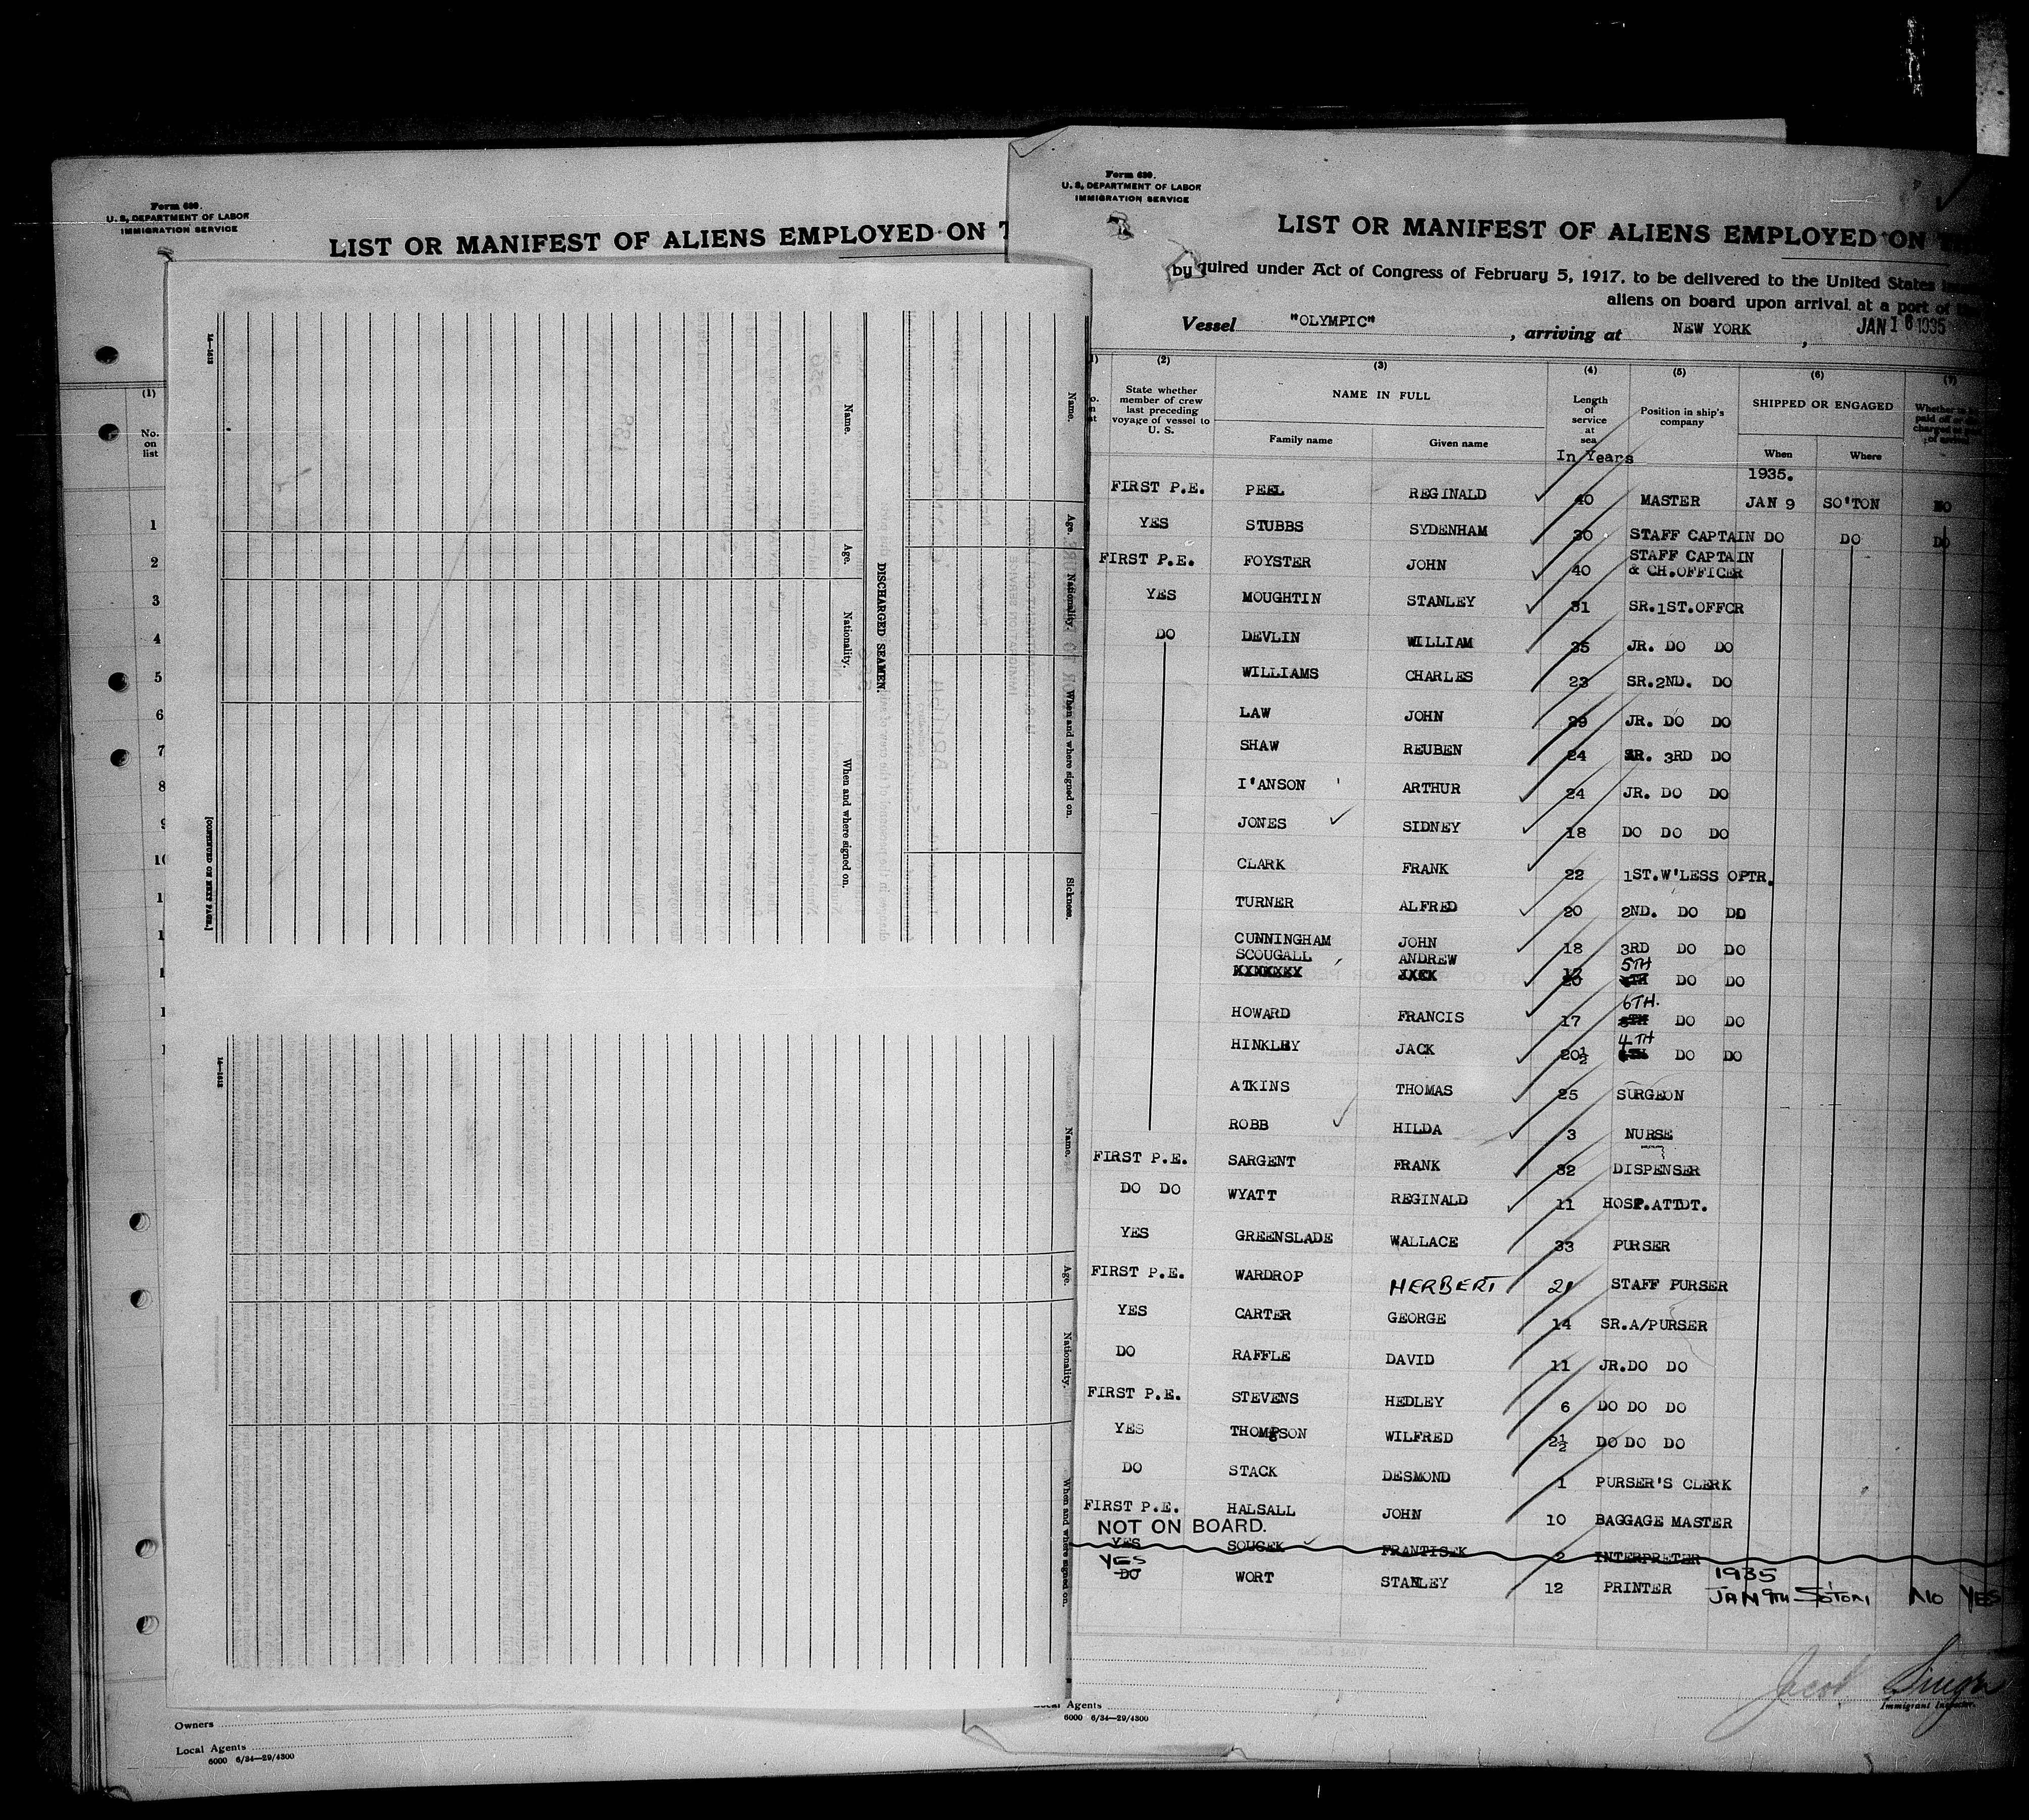 Form 680.
U. S. DEPARTMENT OF LABOR
IMMIGRATION SERVICE
LIST OR MANIFEST OF ALIENS EMPLOYED ON
(1)
No. on list
1
2
3
4
5
6
7
8
9
16-1613
Name.
Age.
Nationality.
When and where signed on.
DISCHARGED SEAMEN.
Name.
Age.
Nationality.
When and where signed on.
Sickness.
[CONTINUED ON NEXT PAGE.]
16-1613
Name.
Age.
Nationality.
When and where signed on.
Owners
Local Agents
6000 6/34—29/4300
Form 680.
U. S. DEPARTMENT OF LABOR
IMMIGRATION SERVICE
LIST OR MANIFEST OF ALIENS EMPLOYED ON
by quired under Act of Congress of February 5, 1917, to be delivered to the United States
aliens on board upon arrival at a port of
Vessel "OLYMPIC", arriving at NEW YORK, JAN 16 1935
(2) (3) (4) (5) (6) (7)
State whether member of crew last preceding voyage of vessel to U. S.
NAME IN FULL
Family name Given name
Length of service at sea
In Years
Position in ship's company
SHIPPED OR ENGAGED
When Where
1935.
FIRST P.E. PEEL REGINALD 40 MASTER JAN 9 SO'TON NO
YES STUBBS SYDENHAM 30 STAFF CAPTAIN DO DO DO
FIRST P.E. FOYSTER JOHN 40 STAFF CAPTAIN & CH.OFFICER
YES MOUGHTIN STANLEY 31 SR.1ST.OFFCR
DO DEVLIN WILLIAM 35 JR. DO DO
WILLIAMS CHARLES 23 SR.2ND. DO
LAW JOHN 29 JR. DO DO
SHAW REUBEN 24 SR. 3RD DO
I'ANSON ' ARTHUR 24 JR. DO DO
JONES SIDNEY 18 DO DO DO
CLARK FRANK 22 1ST.W'LESS OPTR.
TURNER ALFRED 20 2ND. DO DO
CUNNINGHAM JOHN 18 3RD DO DO
SCOUGALL ANDREW 5TH DO DO
HOWARD FRANCIS 17 6TH. DO DO
HINKLEY JACK 20½ 4TH DO DO
ATKINS THOMAS 25 SURGEON
ROBB HILDA 3 NURSE
FIRST P.E. SARGENT FRANK 32 DISPENSER
DO DO WYATT REGINALD 11 HOSP.ATTDT.
YES GREENSLADE WALLACE 33 PURSER
FIRST P.E. WARDROP HERBERT 21 STAFF PURSER
YES CARTER GEORGE 14 SR.A/PURSER
DO RAFFLE DAVID 11 JR.DO DO
FIRST P.E. STEVENS HEDLEY 6 DO DO DO
YES THOMPSON WILFRED 2½ DO DO DO
DO STACK DESMOND 1 PURSER'S CLERK
FIRST P.E. HALSALL JOHN 10 BAGGAGE MASTER
NOT ON BOARD.
YES SOUCEK FRANTISEK 2 INTERPRETER
YES DO WORT STANLEY 12 PRINTER 1935 JAN 9TH SO'TON NO YES
Immigrant Inspector.
Local Agents
6000 6/34—29/4300